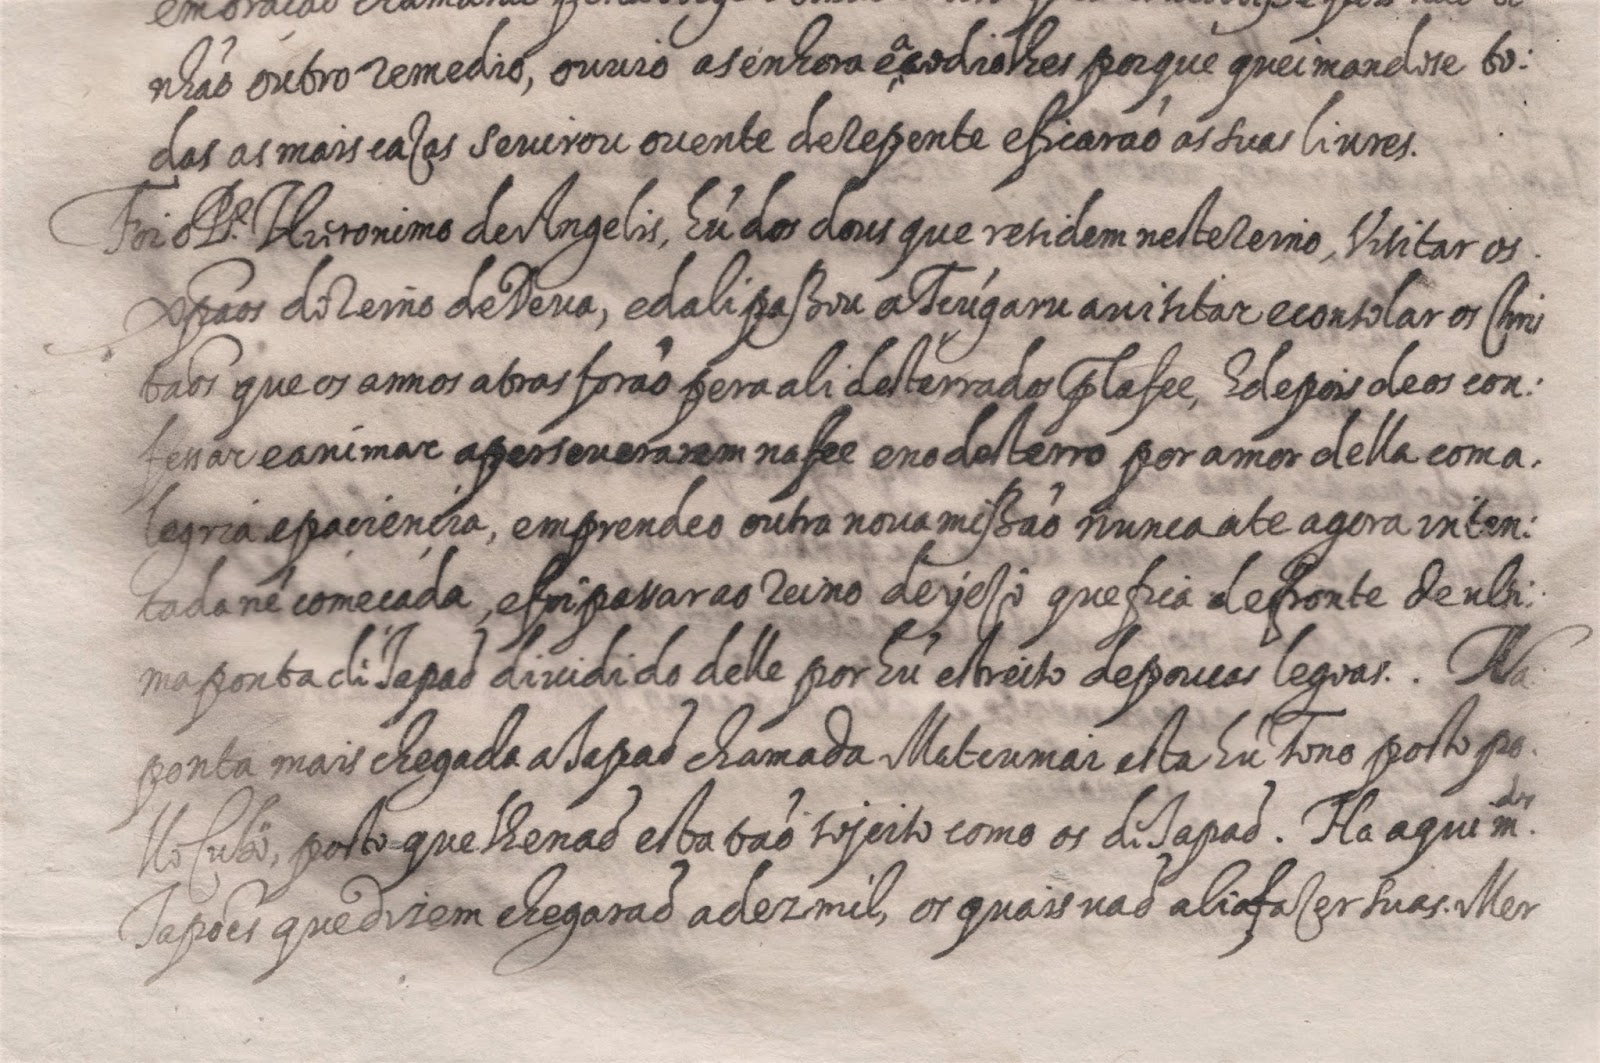 em oração chamando
nhaõ outro remedio, ouuio a senhora e acodiolhes porque queimandose to:
das as mais casas se uirou o uente de repente e ficaraõ as suas liures.
Foi o Pe. Hieronimo de Angelis, hũ dos dous que residem neste reino, visitar os
xpaõs do reino de Deua, e dali passou a Tçugaru a uisitar e consolar os Chris
taõs que os annos atras foraõ pera ali desterrados pla fee, E depois de os con:
fessar e animar a perseuerarem na fee e no desterro por amor della com a.
legria e paciencia, emprendeo outra noua missaõ nunca ate agora inten:
tada nẽ começada, e foi passar ao reino de yesso que fica defronte da ulti:
ma ponta di Japaõ diuidido delle por hũ estreito de poucas legoas. . Na
ponta mais chegada a Japaõ chamada Matçumai esta hũ Tono posto po.
llo Cubo, posto que lhe naõ esta taõ sojeito como os di Japaõ. Ha aqui m.tos
Japoẽs que dizem chegaraõ a dez mil, os quais uaõ ali a fazer suas. Mer